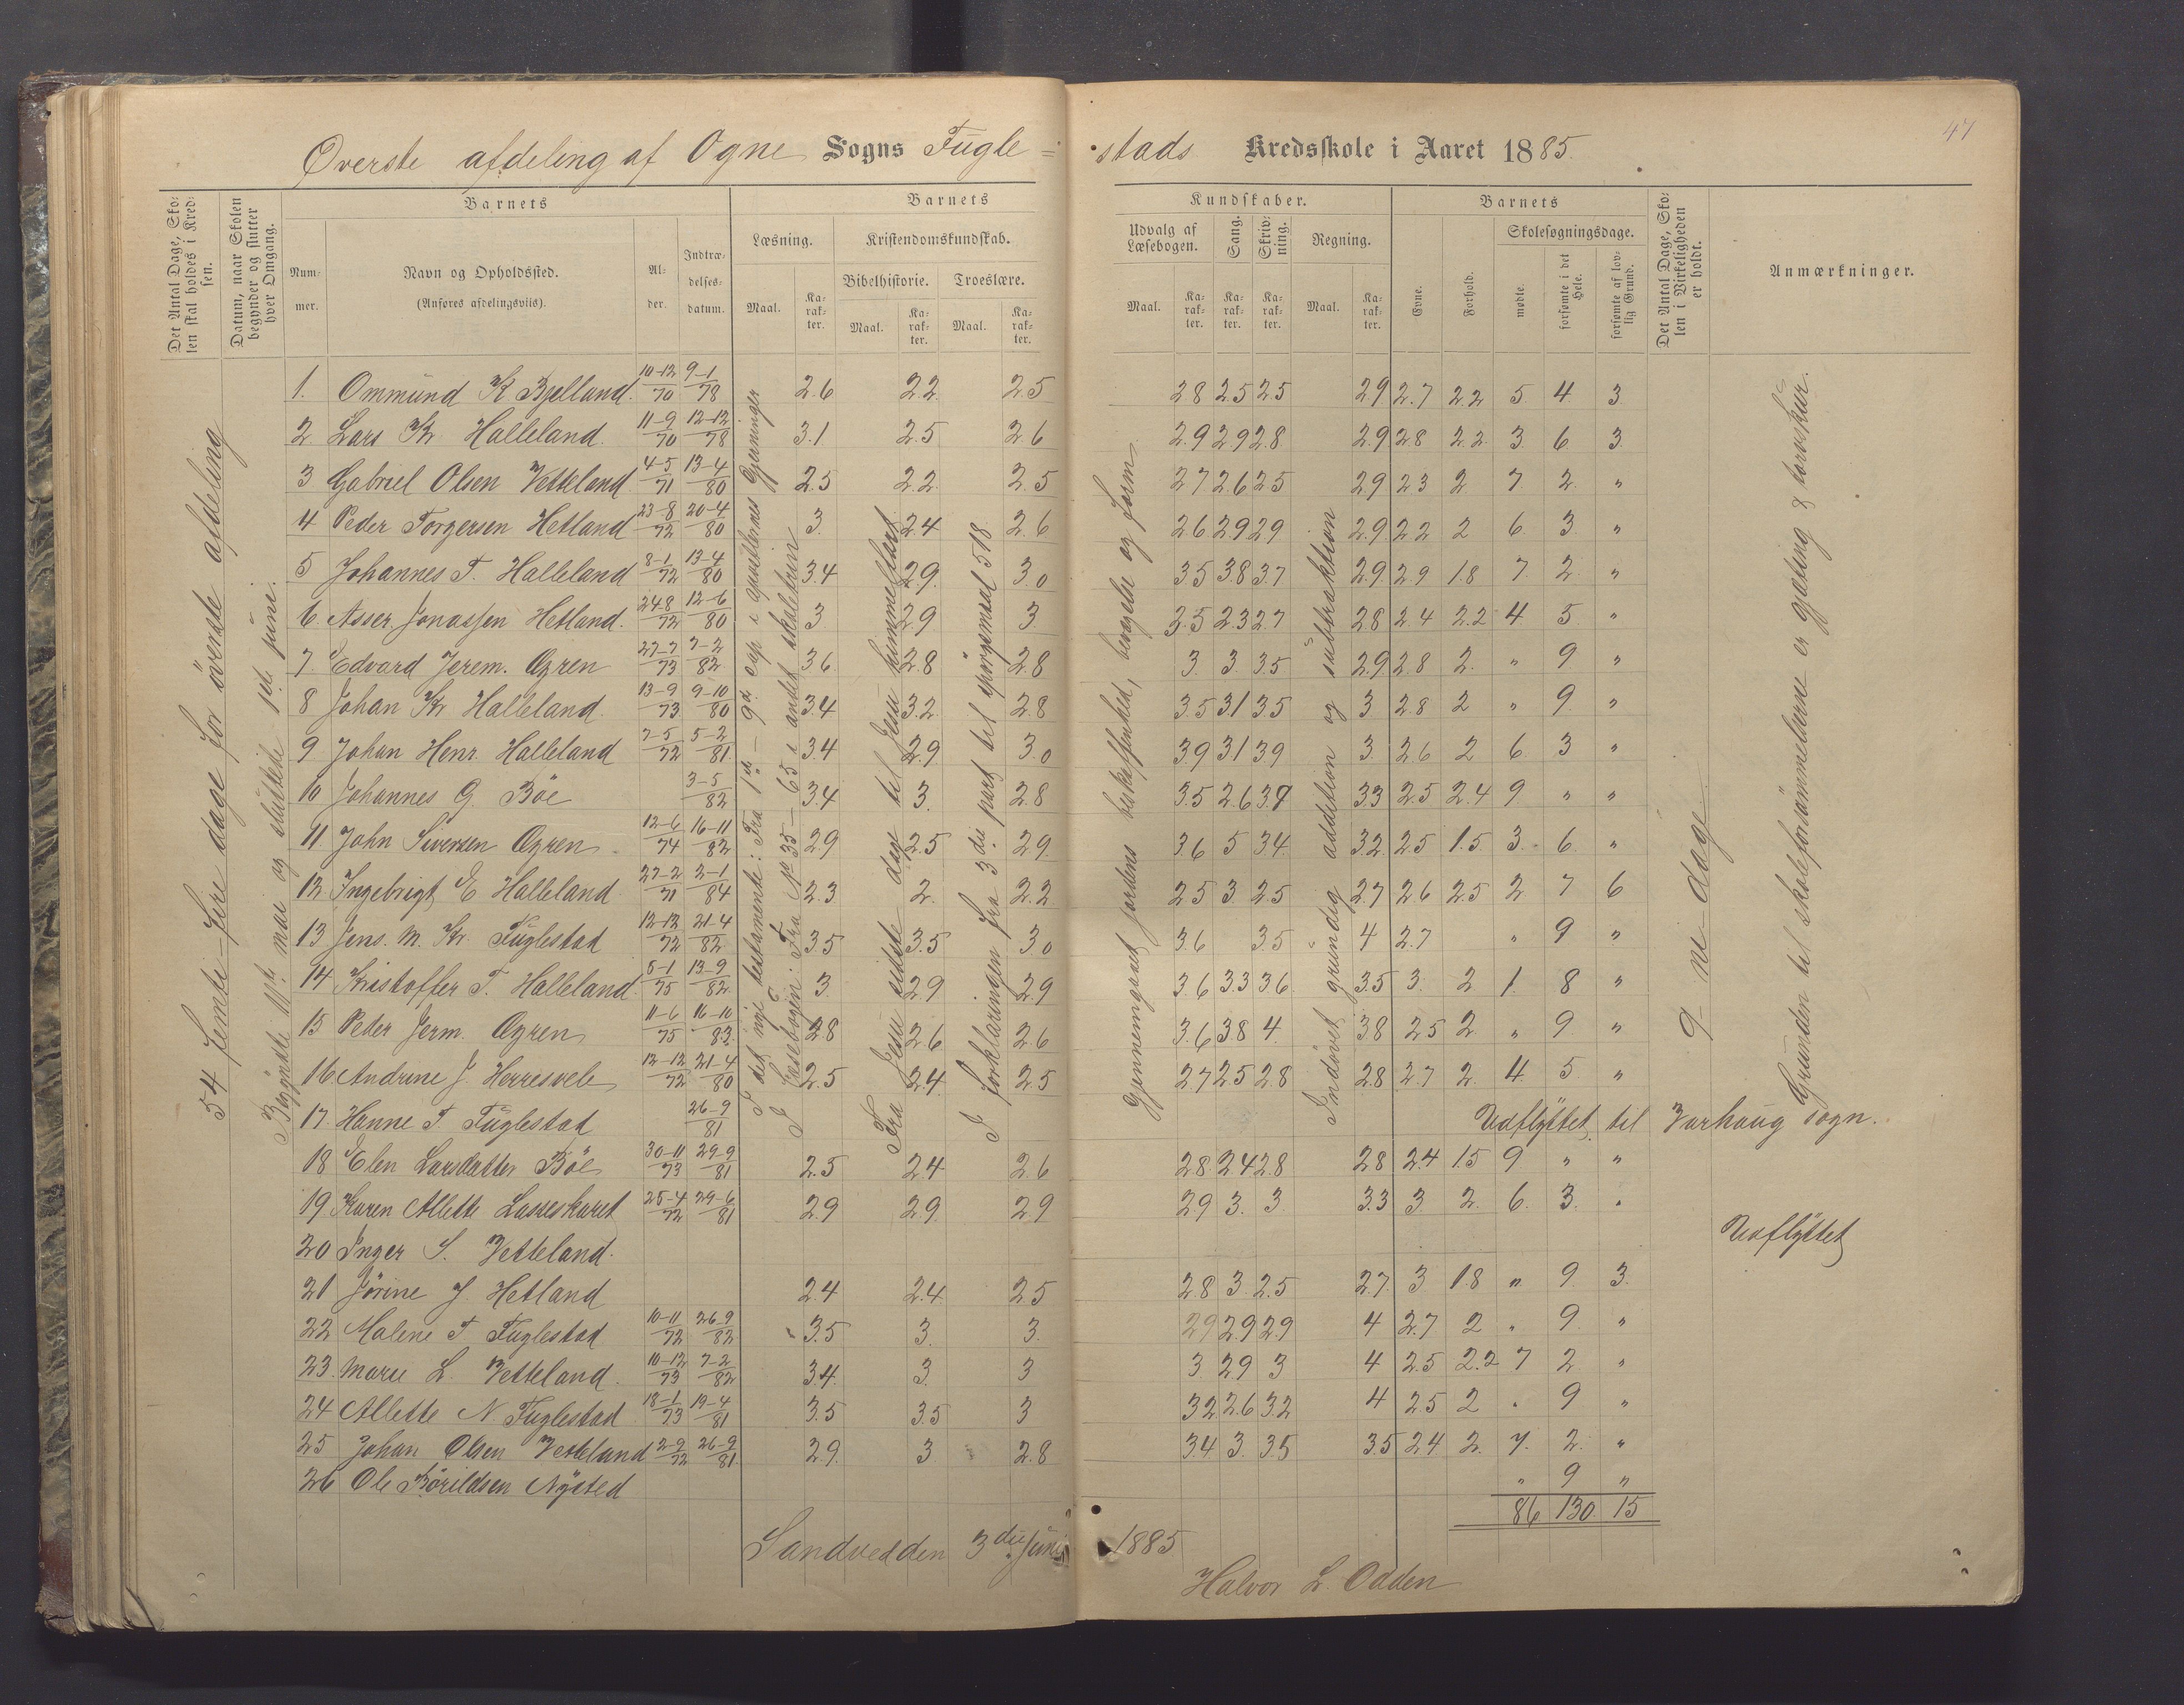 47
Øverste afdeling af Ogne Sogns Fugle=stads Kredsskole i Aaret 1885.
Det Antal Dage, Skolen skal holdes i Kredsen.
Datum, naar Skolen begynder og slutter hver Omgang.
Barnets
Nummer.
Navn og Opholdssted.
(Anføres afdelingsviis).
Alder.
Indtrædelses-datum.
Barnets Kundskaber.
Læsning.
Maal. Karakter.
Kristendomskundskab.
Bibelhistorie. Troeslære.
Maal. Karakter. Maal. Karakter.
Udvalg af Læsebogen. Sang. Skrivning. Regning.
Maal. Karakter. Karakter. Karakter. Maal. Karakter.
Barnets
Evne. Forhold.
Skolesøgningsdage.
mødte. forsømte i det Hele. forsømte af lovlig Grund.
Det Antal Dage, Skolen i Virkeligheden er holdt.
Anmærkninger.
54 femti-fire dage for øverste afdeling
Begyndte 11te mai og sluttede 1ste juni.
I det nye testamente: Fra 1ste – 9de cap i apostlenes Gjerninger
I Læsebogen: Fra No 35 – 65 i andet skoletrin
Fra Jesu sidste dage til Jesu himmelfart
I forklaringen fra 3die part til spörgsmaal 518
Gjennemgaaet jordens beskaffenhed, bevegelse og form.
Indövet grundig addition og subtraktion
9 – ni – dage
Grunden til skoleforsömmelserne er gjæting & torvskur.
1. Ommund K Bjelland. 10-12/70 9-1/78 2.6 2.2 2.5 2.8 2.5 2.5 2.9 2.7 2.2 5 4 3
2 Lars Kr. Halleland. 11-9/70 12-12/78 3.1 2.5 2.6 2.9 2.9 2.8 2.9 2.8 2.2 3 6 3
3 Gabriel Olsen Vetteland 4-5/71 13-4/80 2.5 2.2 2.5 2.7 2.6 2.5 2.9 2.3 2 7 2 "
4 Peder Torgersen Hetland 23-8/72 20-4/80 3. 2.4 2.6 2.6 2.9 2.9 2.9 2.2 2 6 3 "
5 Johannes T. Halleland 8-1/72 13-4/80 3.4 2.9 3.0 3.5 3.8 3.7 2.9 2.9 1.8 7 2 "
6. Asser Jonassen Hetland. 24-8/72 12-6/80 3 2.9 3 3.5 2.3 2.7 2.8 2.4 2.2 4 5 "
7. Edvard Jerem. Ogren 27-7/73 7-2/82 3.6 2.8 2.8 3. 3 3.5 2.9 2.8 2. " 9 "
8 Johan Kr. Halleland. 13-9/73 9-10/80 3.4 3.2 2.8 3.5 3.1 3.5 3 2.8 2 " 9. "
9. Johan Henr. Halleland 7-5/72 5-2/81 3.4 2.9 3.0 3.9 3.1 3.9 3. 2.6 2 6 3 "
10 Johannes G. Böe 3-5/82 3.4 3. 2.8 3.5 2.6 3.7 3.3 2.5 2.4 9 " "
11 John Siversen Ogren 12-6/74 16-11/82 2.9 2.5 2.9 3.6 5 3.4 3.2 2.5 1.5 3. 6. "
12 Ingebrigt E Halleland 27-2/71 2-1/84 2.3 2. 2.2 2.5 3. 2.5 2.7 2.6 2.5 2 7 6
13 Jens. M. Kr. Fuglestad 12-12/72 21-4/82 3.5 3.5 3.0 3.6 3.5 4 2.7 " 9 "
14 Kristoffer T. Halleland. 5-1/75 13-9/82 3. 2.9 2.9 3.6 3.3 3.6 3.5 3. 2 1. 8 "
15 Peder Jerm. Ogren 11-6/75 16-10/83. 2.8 2.6 2.6 3.6 3.8 4. 3.8 2.5 2 " 9 "
16. Andrine J. Herresvele 12-12/72 21-4/80 2.5 2.4 2.5 2.7 2.5 2.8 2.8 2.7 2. 4. 5. "
17. Hanne T Fuglestad 26-9/81 Udflyttet til Varhaug sogn.
18 Elen Larsdatter Böe 30-11/73 29-9/81 2.5 2.4 2.6 2.8 2.4 2.8 2.8 2.4 1.5 9 " "
19. Karen Allette Lasseskaret 25-4/72 29-6/81 2.9 2.9 2.9 2.9 3. 3 3.3 3 2. 6. 3. "
20 Inger S. Vetteland. Udflyttet
21 Jörine J. Hetland 2.4 2.4 2.5 2.8 3 2.5 2.7. 3 1.8 " 9. 3.
22 Malene T. Fuglestad 10-11/72 26-9/82 3.5 3. 3. 2.9 2.9 2.9 4 2.7 2 " 9. "
23. Marie L. Vetteland 10-12/73 7-2/82 3.4. 3. 3 3. 2.9 3 4 2.5 2.2 7 2 "
24 Allette N. Fuglestad 18-1/73 19-4/81 3.5 3.5 3 3.2 2.6 3.2 4 2.5 2 " 9 "
25 Johan Olsen Vetteland 2-9/72 26-9/81 2.9. 3 2.8 3.4 3. 3.5 3.5 2.4 2. 7. 2. "
26 Ole Törildsen Nysted " 9 "
86 130. 15
Sandvedden 3die juni 1885
Halvor L. Odden